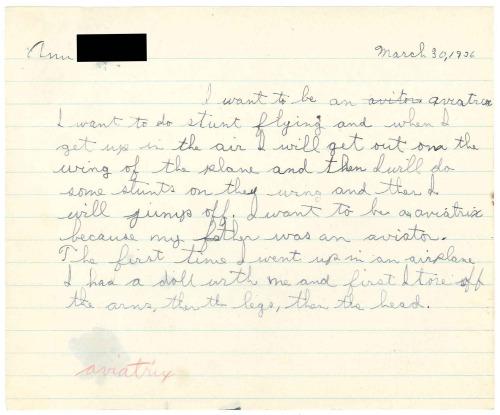 Ann
March 30, 1936
I want to be an avitors aviatrix
I want to do stunt flying and when I
get up in the air I will get out on a the
wing of the plane and then I will do
some stunts on they wing and then I
will jump off. I want to be as aviatrix
because my father was an aviator.
The first time I went up in an airplane
I had a doll with me and first I tore off
the arms, then the legs, then the head.
aviatrix